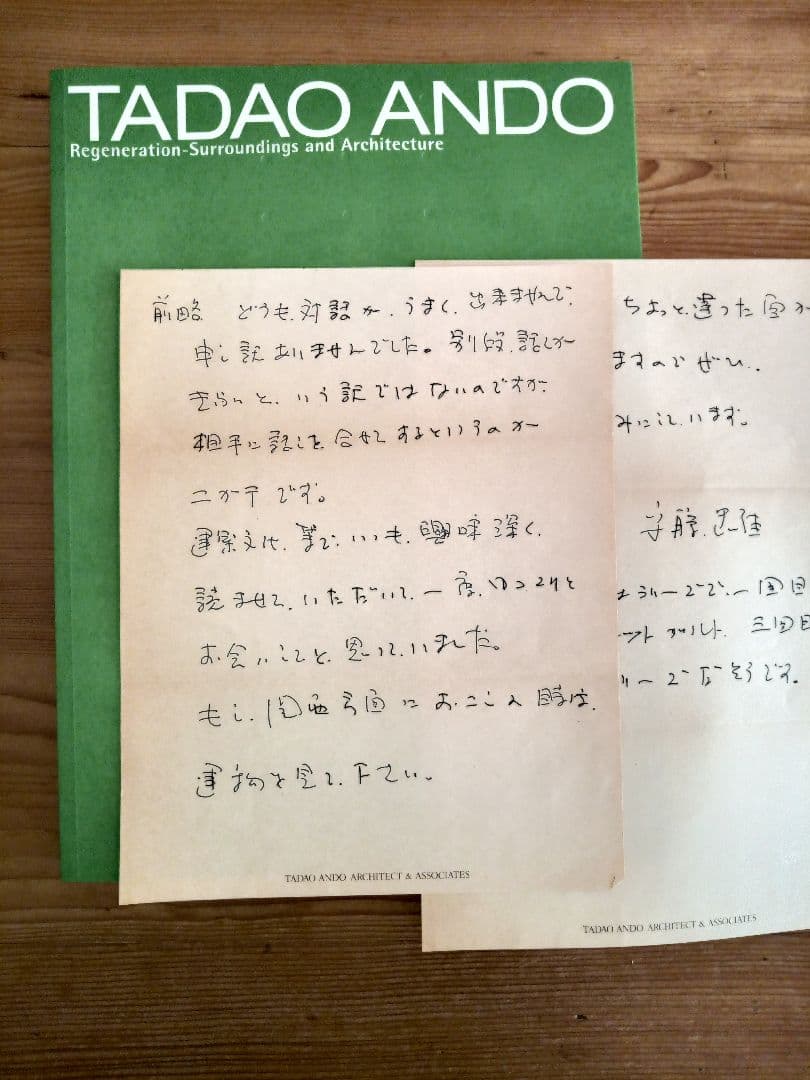 TADAO ANDO
Regeneration-Surroundings and Architecture
前略 どうも、対話が、うまく、出来ませんで、
申し訳ありませんでした。別段、話しが
きらいと、いう訳ではないのですが、
相手に話しを合せてするというのが
ニガテです。
建築文化、等で、いつも、興味深く、
読ませて、いただいて、一度、ゆっくりと
お会いしたいと、思って、いました。
もし、関西方面に、おこしの時は、
建物を見て、下さい。
TADAO ANDO ARCHITECT & ASSOCIATES
ちょっと、違った面が
ますのでぜひ、
みにして、います。
安藤忠雄
一回目
三回目
なそうです。
TADAO ANDO ARCHITECT & ASSOCIATES